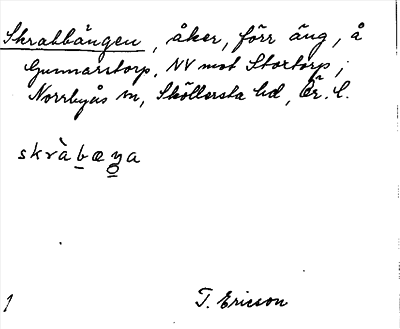 Skrabbängen, åker, förr äng, å
Gunnarstorp, NV mot Stortorp,
Norrbyås sn, Sköllersta hd, Är. l.
skràbæŋa
T. Ericson